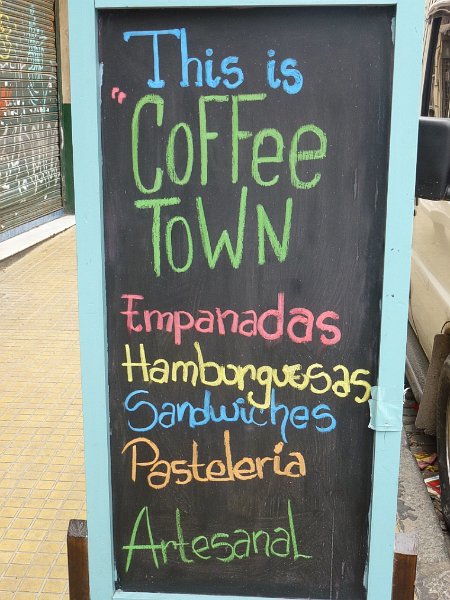 This is
"Coffee
Town
Empanadas
Hamburguesas
Sandwiches
Pastelería
Artesanal